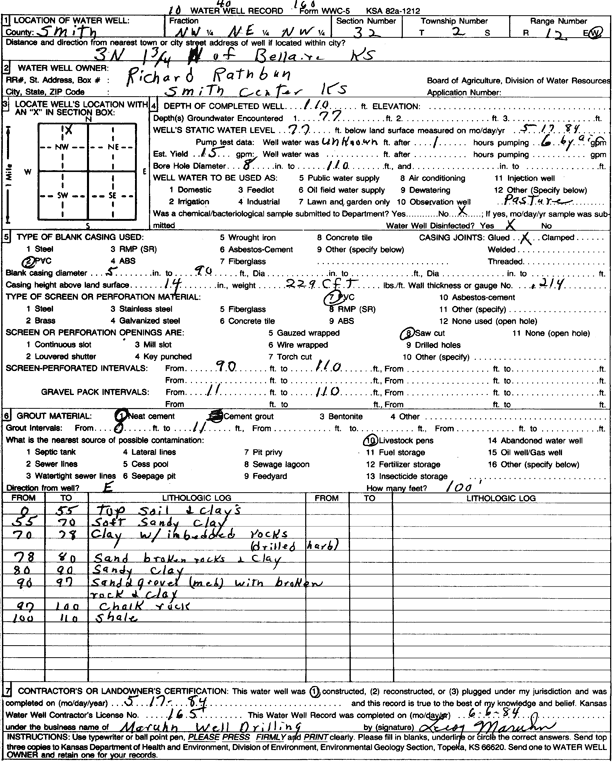 10 40 160
WATER WELL RECORD Form WWC-5 KSA 82a-1212
1 LOCATION OF WATER WELL: Fraction Section Number Township Number Range Number
County: Smith NW ¼ NE ¼ NW ¼ 32 T 2 S R 12 E/W
Distance and direction from nearest town or city street address of well if located within city?
3N 1 3/4 of Bellaire KS
2 WATER WELL OWNER: Richard Rathbun
RR#, St. Address, Box # : Board of Agriculture, Division of Water Resources
City, State, ZIP Code : Smith Center KS Application Number:
3 LOCATE WELL'S LOCATION WITH AN "X" IN SECTION BOX:
N
X
NW NE
W E
SW SE
S
1 Mile
4 DEPTH OF COMPLETED WELL 110 ft. ELEVATION:
Depth(s) Groundwater Encountered 1. 77 ft. 2. ft. 3. ft.
WELL'S STATIC WATER LEVEL 77 ft. below land surface measured on mo/day/yr 5-17-84
Pump test data: Well water was unknown ft. after 1 hours pumping 6 by air gpm
Est. Yield 15 gpm: Well water was ft. after hours pumping gpm
Bore Hole Diameter 8 in. to 110 ft., and in. to ft.
WELL WATER TO BE USED AS: 5 Public water supply 8 Air conditioning 11 Injection well
1 Domestic 3 Feedlot 6 Oil field water supply 9 Dewatering 12 Other (Specify below)
2 Irrigation 4 Industrial 7 Lawn and garden only 10 Observation well Pasture
Was a chemical/bacteriological sample submitted to Department? Yes No X; If yes, mo/day/yr sample was submitted Water Well Disinfected? Yes X No
5 TYPE OF BLANK CASING USED: 5 Wrought iron 8 Concrete tile CASING JOINTS: Glued X Clamped
1 Steel 3 RMP (SR) 6 Asbestos-Cement 9 Other (specify below) Welded
2 PVC 4 ABS 7 Fiberglass Threaded
Blank casing diameter 5 in. to 90 ft., Dia in. to ft., Dia in. to ft.
Casing height above land surface 14 in., weight 229 CFT lbs./ft. Wall thickness or gauge No. .214
TYPE OF SCREEN OR PERFORATION MATERIAL: 7 PVC 10 Asbestos-cement
1 Steel 3 Stainless steel 5 Fiberglass 8 RMP (SR) 11 Other (specify)
2 Brass 4 Galvanized steel 6 Concrete tile 9 ABS 12 None used (open hole)
SCREEN OR PERFORATION OPENINGS ARE: 5 Gauzed wrapped 8 Saw cut 11 None (open hole)
1 Continuous slot 3 Mill slot 6 Wire wrapped 9 Drilled holes
2 Louvered shutter 4 Key punched 7 Torch cut 10 Other (specify)
SCREEN-PERFORATED INTERVALS: From 90 ft. to 110 ft., From ft. to ft.
From ft. to ft., From ft. to ft.
GRAVEL PACK INTERVALS: From 11 ft. to 110 ft., From ft. to ft.
From ft. to ft., From ft. to ft.
6 GROUT MATERIAL: 1 Neat cement 2 Cement grout 3 Bentonite 4 Other
Grout Intervals: From 0 ft. to 11 ft., From ft. to ft., From ft. to ft.
What is the nearest source of possible contamination: 10 Livestock pens 14 Abandoned water well
1 Septic tank 4 Lateral lines 7 Pit privy 11 Fuel storage 15 Oil well/Gas well
2 Sewer lines 5 Cess pool 8 Sewage lagoon 12 Fertilizer storage 16 Other (specify below)
3 Watertight sewer lines 6 Seepage pit 9 Feedyard 13 Insecticide storage
Direction from well? E How many feet? 100'
FROM TO LITHOLOGIC LOG FROM TO LITHOLOGIC LOG
0 55 Top Soil & clays
55 70 Soft Sandy clay
70 78 Clay w/ imbedded rocks
(drilled hard)
78 80 Sand broken rocks & clay
80 90 Sandy clay
90 97 Sand & gravel (med) with broken
rock & clay
97 100 Chalk rock
100 110 shale
7 CONTRACTOR'S OR LANDOWNER'S CERTIFICATION: This water well was (1) constructed, (2) reconstructed, or (3) plugged under my jurisdiction and was
completed on (mo/day/year) 5-17-84 and this record is true to the best of my knowledge and belief. Kansas
Water Well Contractor's License No. 165 This Water Well Record was completed on (mo/day/yr) 6-6-84
under the business name of Maruhn Well Drilling by (signature) Leroy Maruhn
INSTRUCTIONS: Use typewriter or ball point pen, PLEASE PRESS FIRMLY and PRINT clearly. Please fill in blanks, underline or circle the correct answers. Send top
three copies to Kansas Department of Health and Environment, Division of Environment, Environmental Geology Section, Topeka, KS 66620. Send one to WATER WELL
OWNER and retain one for your records.